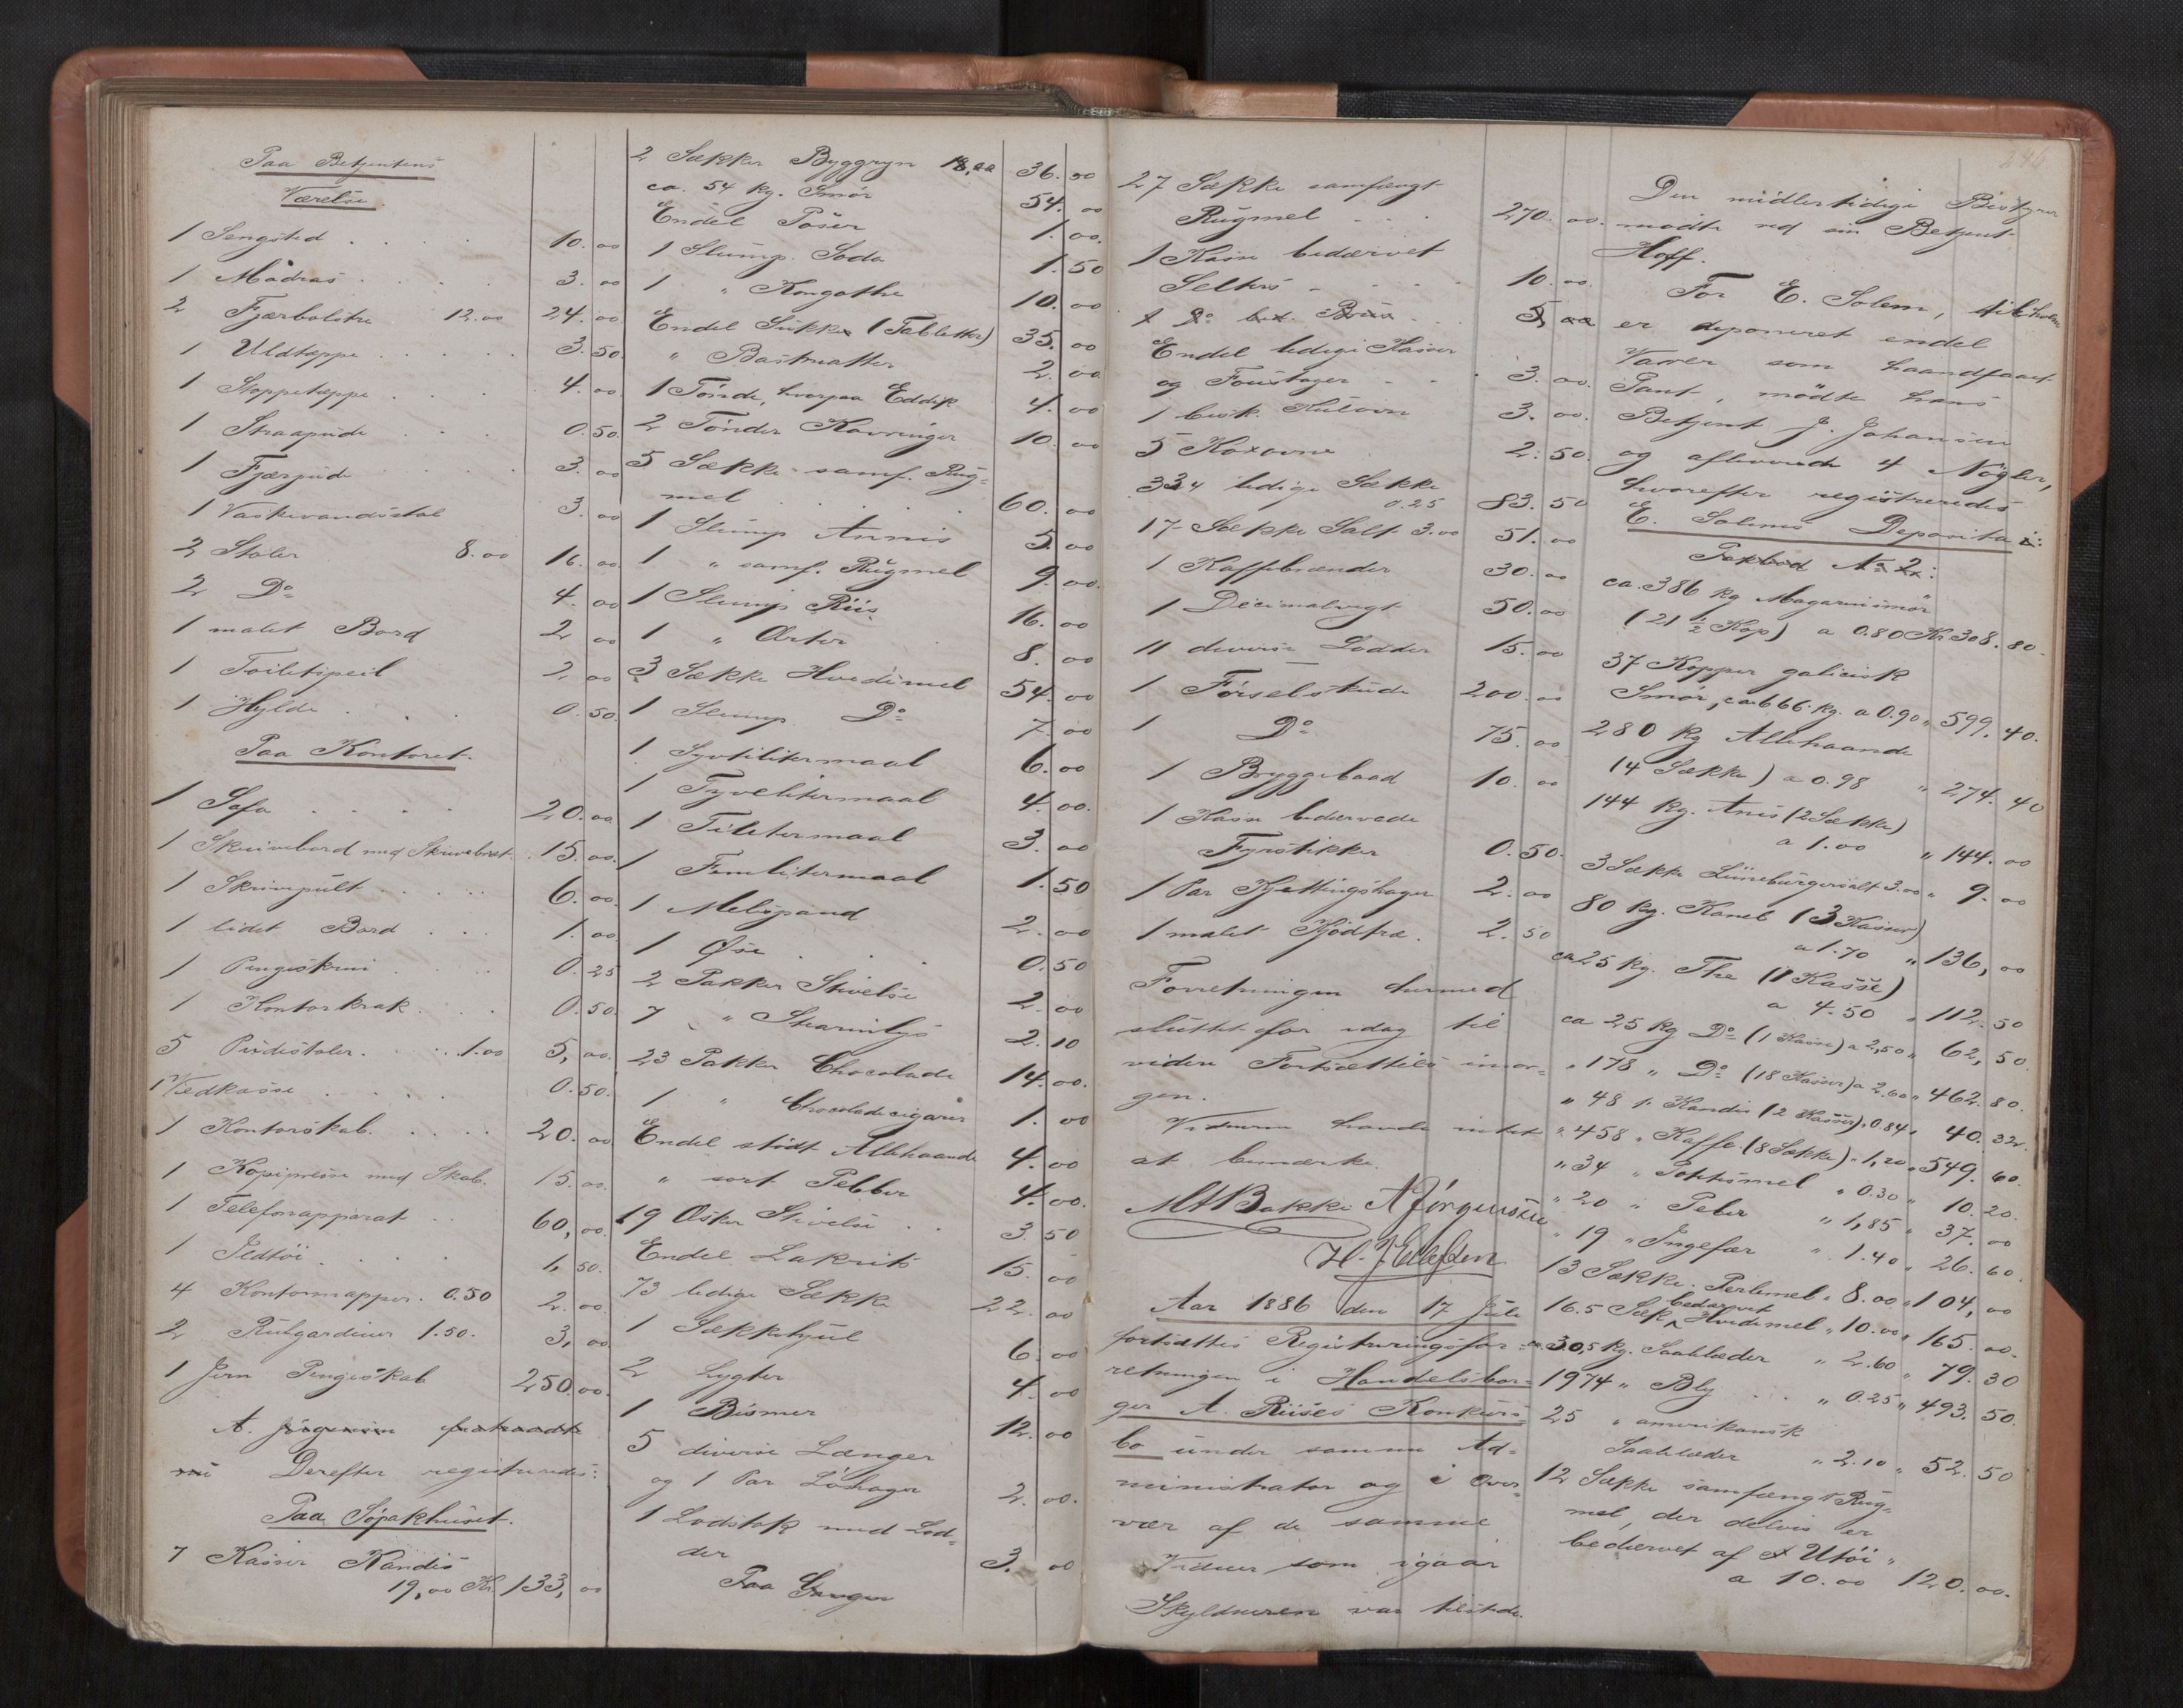 Paa Betjentens
Værelse.
1 Sengsted . . . . 10.00
1 Madras . . . . 3.00
2 Fjærbolstre 12.00 24.00
1 Uldtæppe . . . . 3.50.
1 Stoppetæppe . . . 4.00
1 Straapude . . . 0.50.
1 Fjærpude . . . . 3.00
1 Vaskevandsstol 3.00
2 Stoler 8.00 16.00
2 Do 4.00
1 malet Bord 2.00
1 Toiletspeil 2.00
1 Hylde . . . 0.50.
Paa Kontoret.
1 Sofa . . . . 20.00
1 Skrivebord med Skrivebræt . 15.00.
1 Skrivepult . . . . 6.00.
1 lidet Bord . . . 1.00.
1 Pengeskrin . . . . 0.25
1 Kontorkrak . . . 0.50.
5 Pindestoler . . . 1.00 5,00.
1 Vedkasse . . . . 0.50.
1 Kontorskab . . . . 20.00
1 Kopipresse med Skab. 15.00.
1 Telefonapparat . . 60,00.
1 Ildtøi . . . . 1,50.
4 Kontormapper . 0.50 2.00.
2 Rulgardiner 1.50. 3,00
1 Jern Pengeskab 250.00.
A. Jörgensen fratraadte
nu Derefter registreredes:
Paa Søpakhuset.
7 Kasser Kandis
19,00 Kr. 133,00
2 Sække Byggryn 18,00 36.00
ca. 54 kg. Smør 54.00
Endel Poser 1.00.
1 Slump Soda 1.50
1 " Kongothe 10.00
Endel Sukker (Tabletter) 35.00
" Bastmatter 2.00.
1 Tønde, hvorpaa Eddik 4.00
2 Tønder Kavringer 10.00
5 Sække samf. Rug=
mel . . . . . 60.00
1 Slump Annis 5.00
1 " samf. Rugmel 9.00.
1 Slump Riis 16.00
1 " Erter 8.00
3 Sække Hvedemel 54.00
1 Slump Do 7.00
1 Syvtilitermaal 6.00
1 Tyvelitermaal 4.00.
1 Tilitermaal 3.00
1 Femlitermaal 1.50
1 Melspand 2.00
1 Øse . . . 0.50
2 Pakker Stivelse 2.00
7 " Stearinlys 2.10
23 Pakker Chocolade 14.00.
1 " Chocoladecigarer 1.00
Endel stødt Allehaande 4.00
" sort Pebber 4.00.
19 Æsker Stivelse . . 3.50
Endel Lakrits 15.00
73 ledige Sække 22.00
1 Sækkehjul 6.00
2 Lygter 4.00
1 Bismer 12.00
5 diverse Længer
og 1 Par Löshager 2.00.
1 Lodstok med Lod=
der 3.00
Paa Gangen
27 Sække samfængt
Rugmel . . . 270.00.
1 Kasse bedærvet
Selters . . . . 10.00.
1 Do bed. Brus . . 5,00
Endel ledige Kasser
og Foustager . . . 3.00.
1 besk. Kulovn 3.00.
5 Koxovne 2.50.
334 ledige Sække
0.25 83.50
17 Sække Salt 3.00 51.00
1 Kaffebrænder 30.00
1 Decimalvegt 50.00
11 diverse Lodder 15.00
1 Førselskude 200.00
1 Do 75.00
1 Bryggebaad 10.00
1 Kasse bedærvede
Fyrstikker 0.50.
1 Par Kjettingshager 2.00
1 malet Kjödfad. 2.50
Forretningen dermed
sluttet for idag til
videre Fortsættelse imor=
gen.
Vidnerne havde intet
at bemærke.
MABakke AJörgensen
H. J. Ellefsen
Aar 1886 den 17 Juli
fortsattes Registreringsfor=
retningen i Handelsbor=
ger A. Riises Konkurs=
bo under samme Ad=
ministrator og i Over=
vær af de samme
Vidner som igaar
Skyldneren var tilstede.
Den midlertidige Bestyrer
mødte ved sin Betjent
Hoff.
For E. Solem,
er deponeret endel
Varer som haandfaaet
Pant, mødte hans
Betjent J. Johansen
og afleverede 4 Nögler,
hvorefter registreredes
E. Solems Deposita i:
Pakbod No 2:
ca. 386 kg Magarinsmör
(21 1/2 Kop) a 0.80 Kr 308.80.
37 Kopper galicisk
Smör, ca 666 kg. a 0.90 " 599.40.
280 kg Allehaande
(4 Sække) a 0.98 " 274.40
144 kg. Anis (2 Sække)
a 1.00 " 144.00
3 Sække Lüneburgersalt 3.00 " 9.00
80 kg. Kanel (3 Kasser)
a 1.70 " 136,00
ca 25 kg. The (1 Kasse)
a 4.50 " 112.50
ca 25 kg Do (1 Kasse) a 2,50 " 62,50
" 178 " Do (18 Kasser) a 2.60 " 462.80.
" 48 " Kandis (2 Kasser) " 0.84 " 40.32.
" 458 " Kaffe (8 Sække) " 1,20 " 549.60.
" 34 " Potetsmel " 0.30 " 10.20.
" 20 " Peber " 1,85 " 37.00
" 19 " Ingefær " 1.40 " 26.60.
13 Sække Perlemel " 8.00 " 104,00
16.5 Sæk bedærvet Hvedemel " 10.00 " 165.00.
ca 30,5 kg. Saalelæder " 2.60 " 79.30
1974 " Bly . . . " 0.25 " 493.50.
25 " amerikansk
Saalelæder " 2.10 " 52.50
12 Sække samfængt Rug=
mel, der delvis er
bedærvet af Utöi "
a 10.00 120.00.